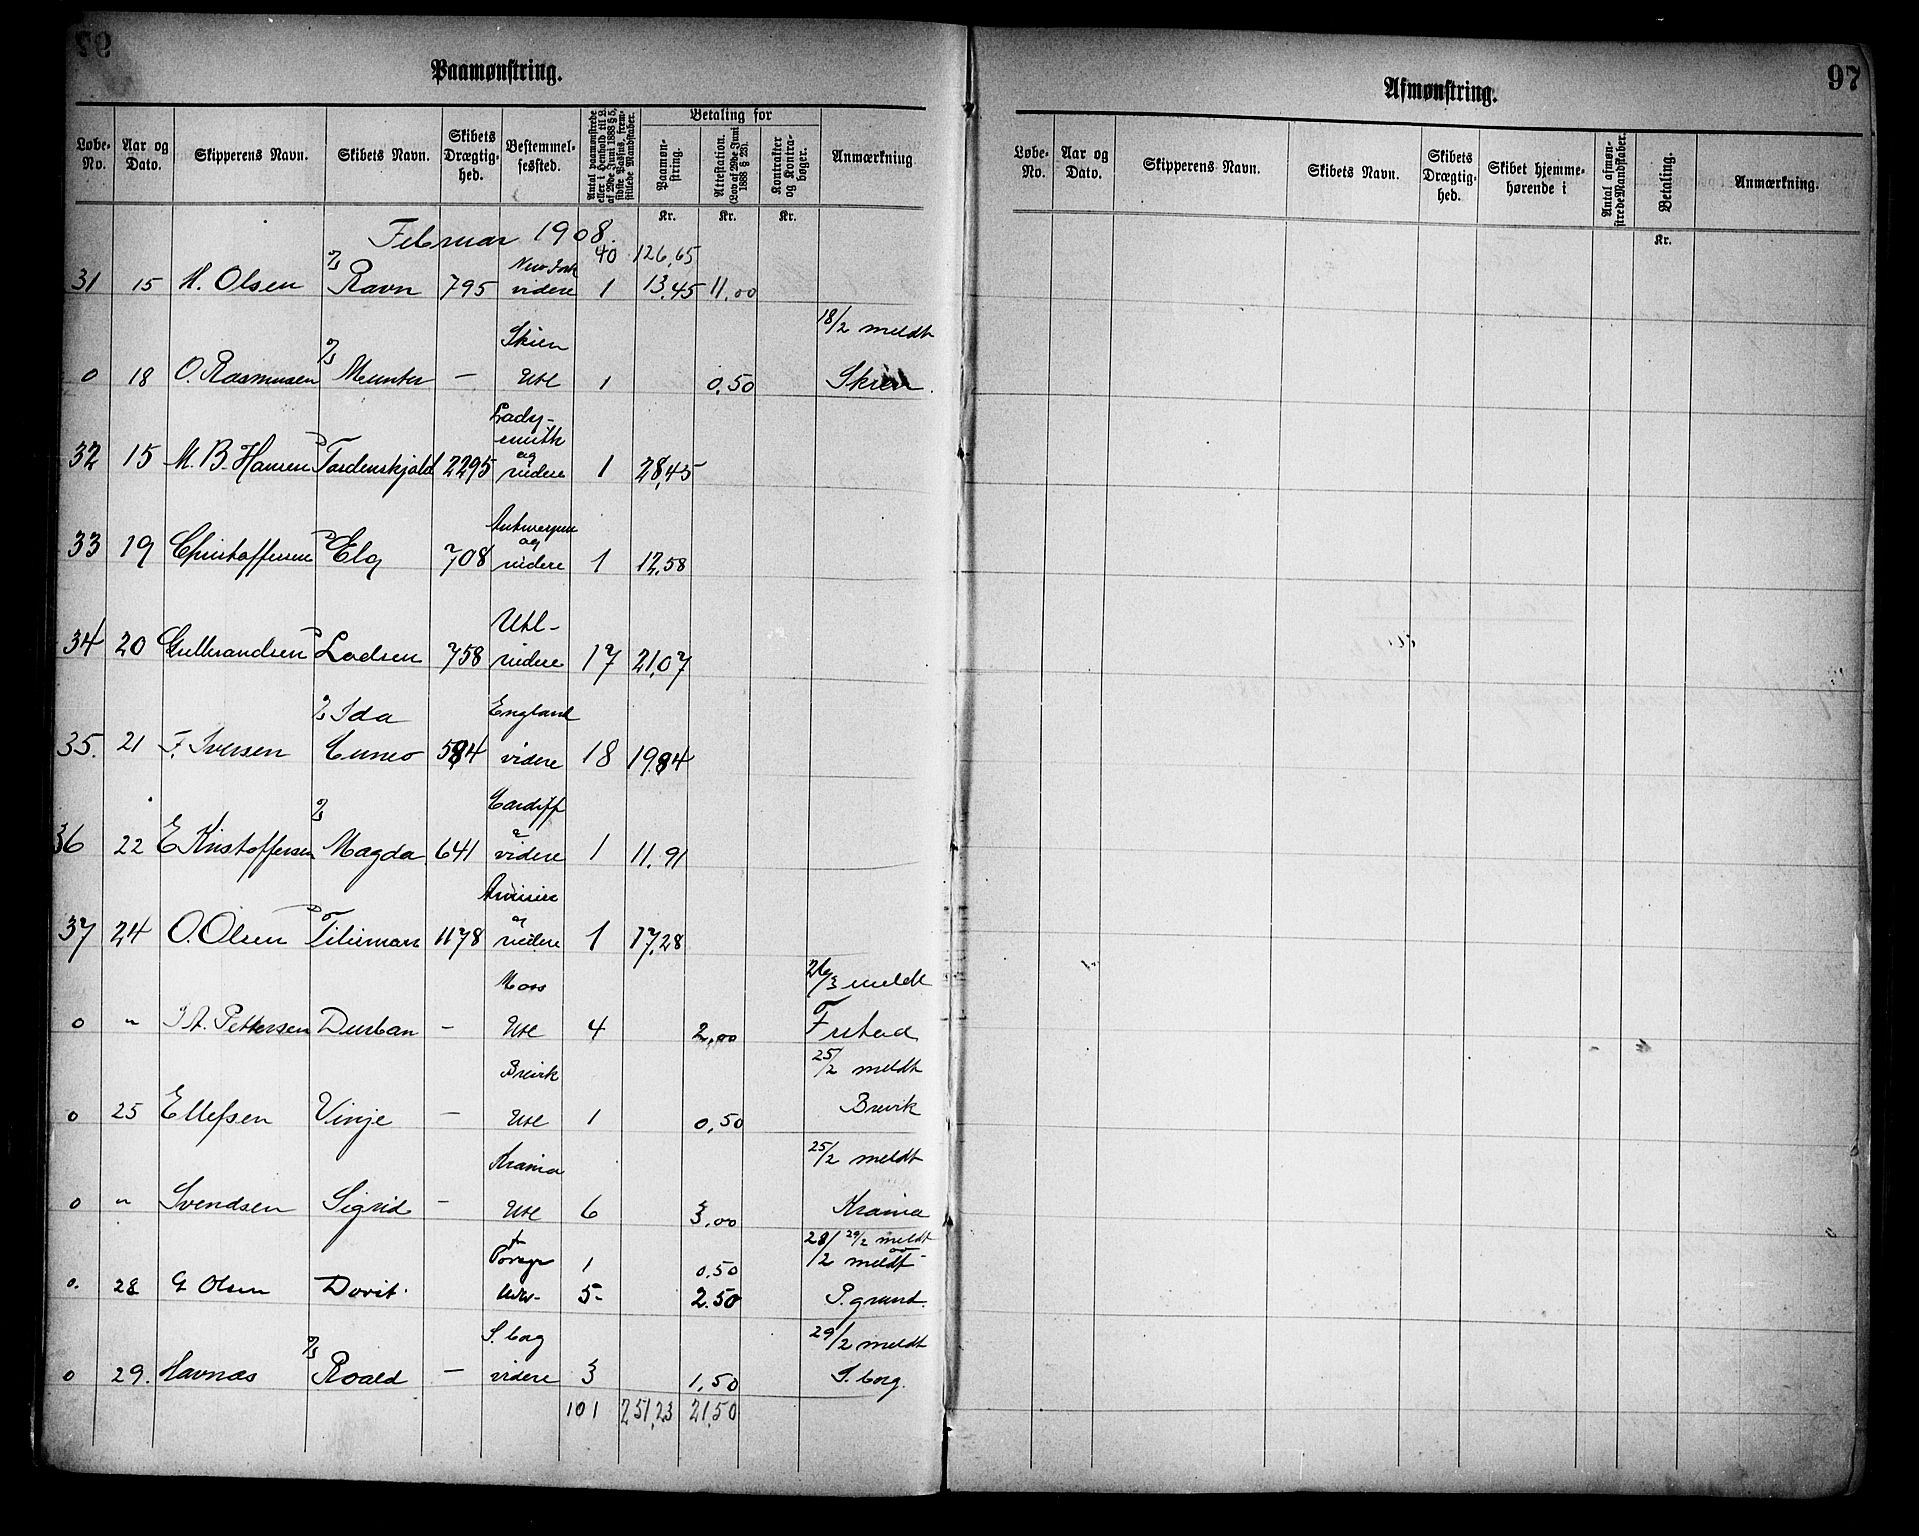 Paamønstring.
Løbe-No. Aar og Dato. Skipperens Navn. Skibets Navn. Skibets Drægtighed. Bestemmelsessted. Antal paamønstrede eller i Henhold til L. af 29de Juni 1888 § 5, sidste Passus, fremstillede Mandskaber. Betaling for Paamønstring. Attestation. (Lov af 29de Juni 1888 § 25). Kontrakter og Kontrabøger. Anmærkning
Kr. Kr. Kr.
Februar 1908
40 126,65
New York
31 15 H. Olsen Ravn 795 videre 1 13,45 11,00
Skien 18/2 meldt
0 18 O. Rasmussen Munter — Utl 1 0,50 Skien
Ladysmith
og
32 15 M. B. Hansen Tordenskjold 2295 videre 1 28,45
Antwerpen
og
33 19 Christoffersen Elg 708 videre 1 12,58
Utl-
34 20 Gulbrandsen Lodsen 758 videre 17 21,07
Ida England
35. 21 F. Iversen Cuneo 584 videre 18 19,84
Cardiff
36 22 E Kristoffersen Magda 641 videre 1 11,91
37 24 O. Olsen 1178 videre 1 17,28
Moss 26/3 meldt
0 " Pettersen Durban – Utl 4 2,00 Frstad
Brevik 25/2 meldt
0 25 Ellefsen Vinje — Utl 1 0,50 Brevik
Krania 25/2 meldt
0 " Svendsen Sigrid – Utl 6 3,00 Krania
29/2 meldt
1 0,50 28/2 meldt
0. 28 G Olsen Dovit 5- 2.50 P.grund.
S.borg 29/2 meldt
0 29. Havnas Roald — videre 3 1,50 S.borg.
101 251,23 21,50
97
Afmønstring.
Løbe-No. Aar og Dato. Skipperens Navn. Skibets Navn. Skibets Drægtighed. Skibet hjemmehørende i Antal afmønstrede Mandskaber. Betaling. Anmærkning.
Kr.